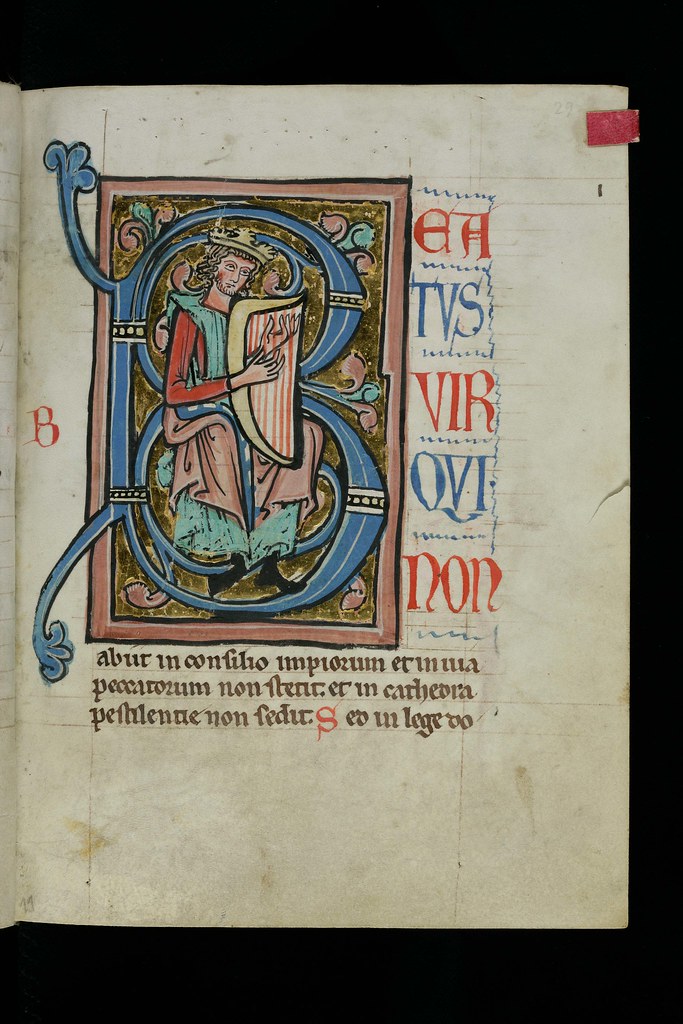 B
B
EA
TVS
VIR
QVI
NON
abiit in consilio impiorum et in uia
peccatorum non stetit. et in cathedra
pestilentie non sedit. Sed in lege do